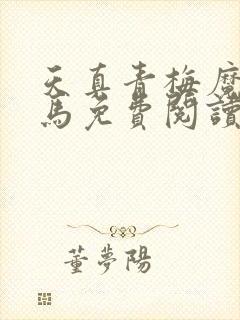 天真青梅魔
馬免費閱讀
董夢陽